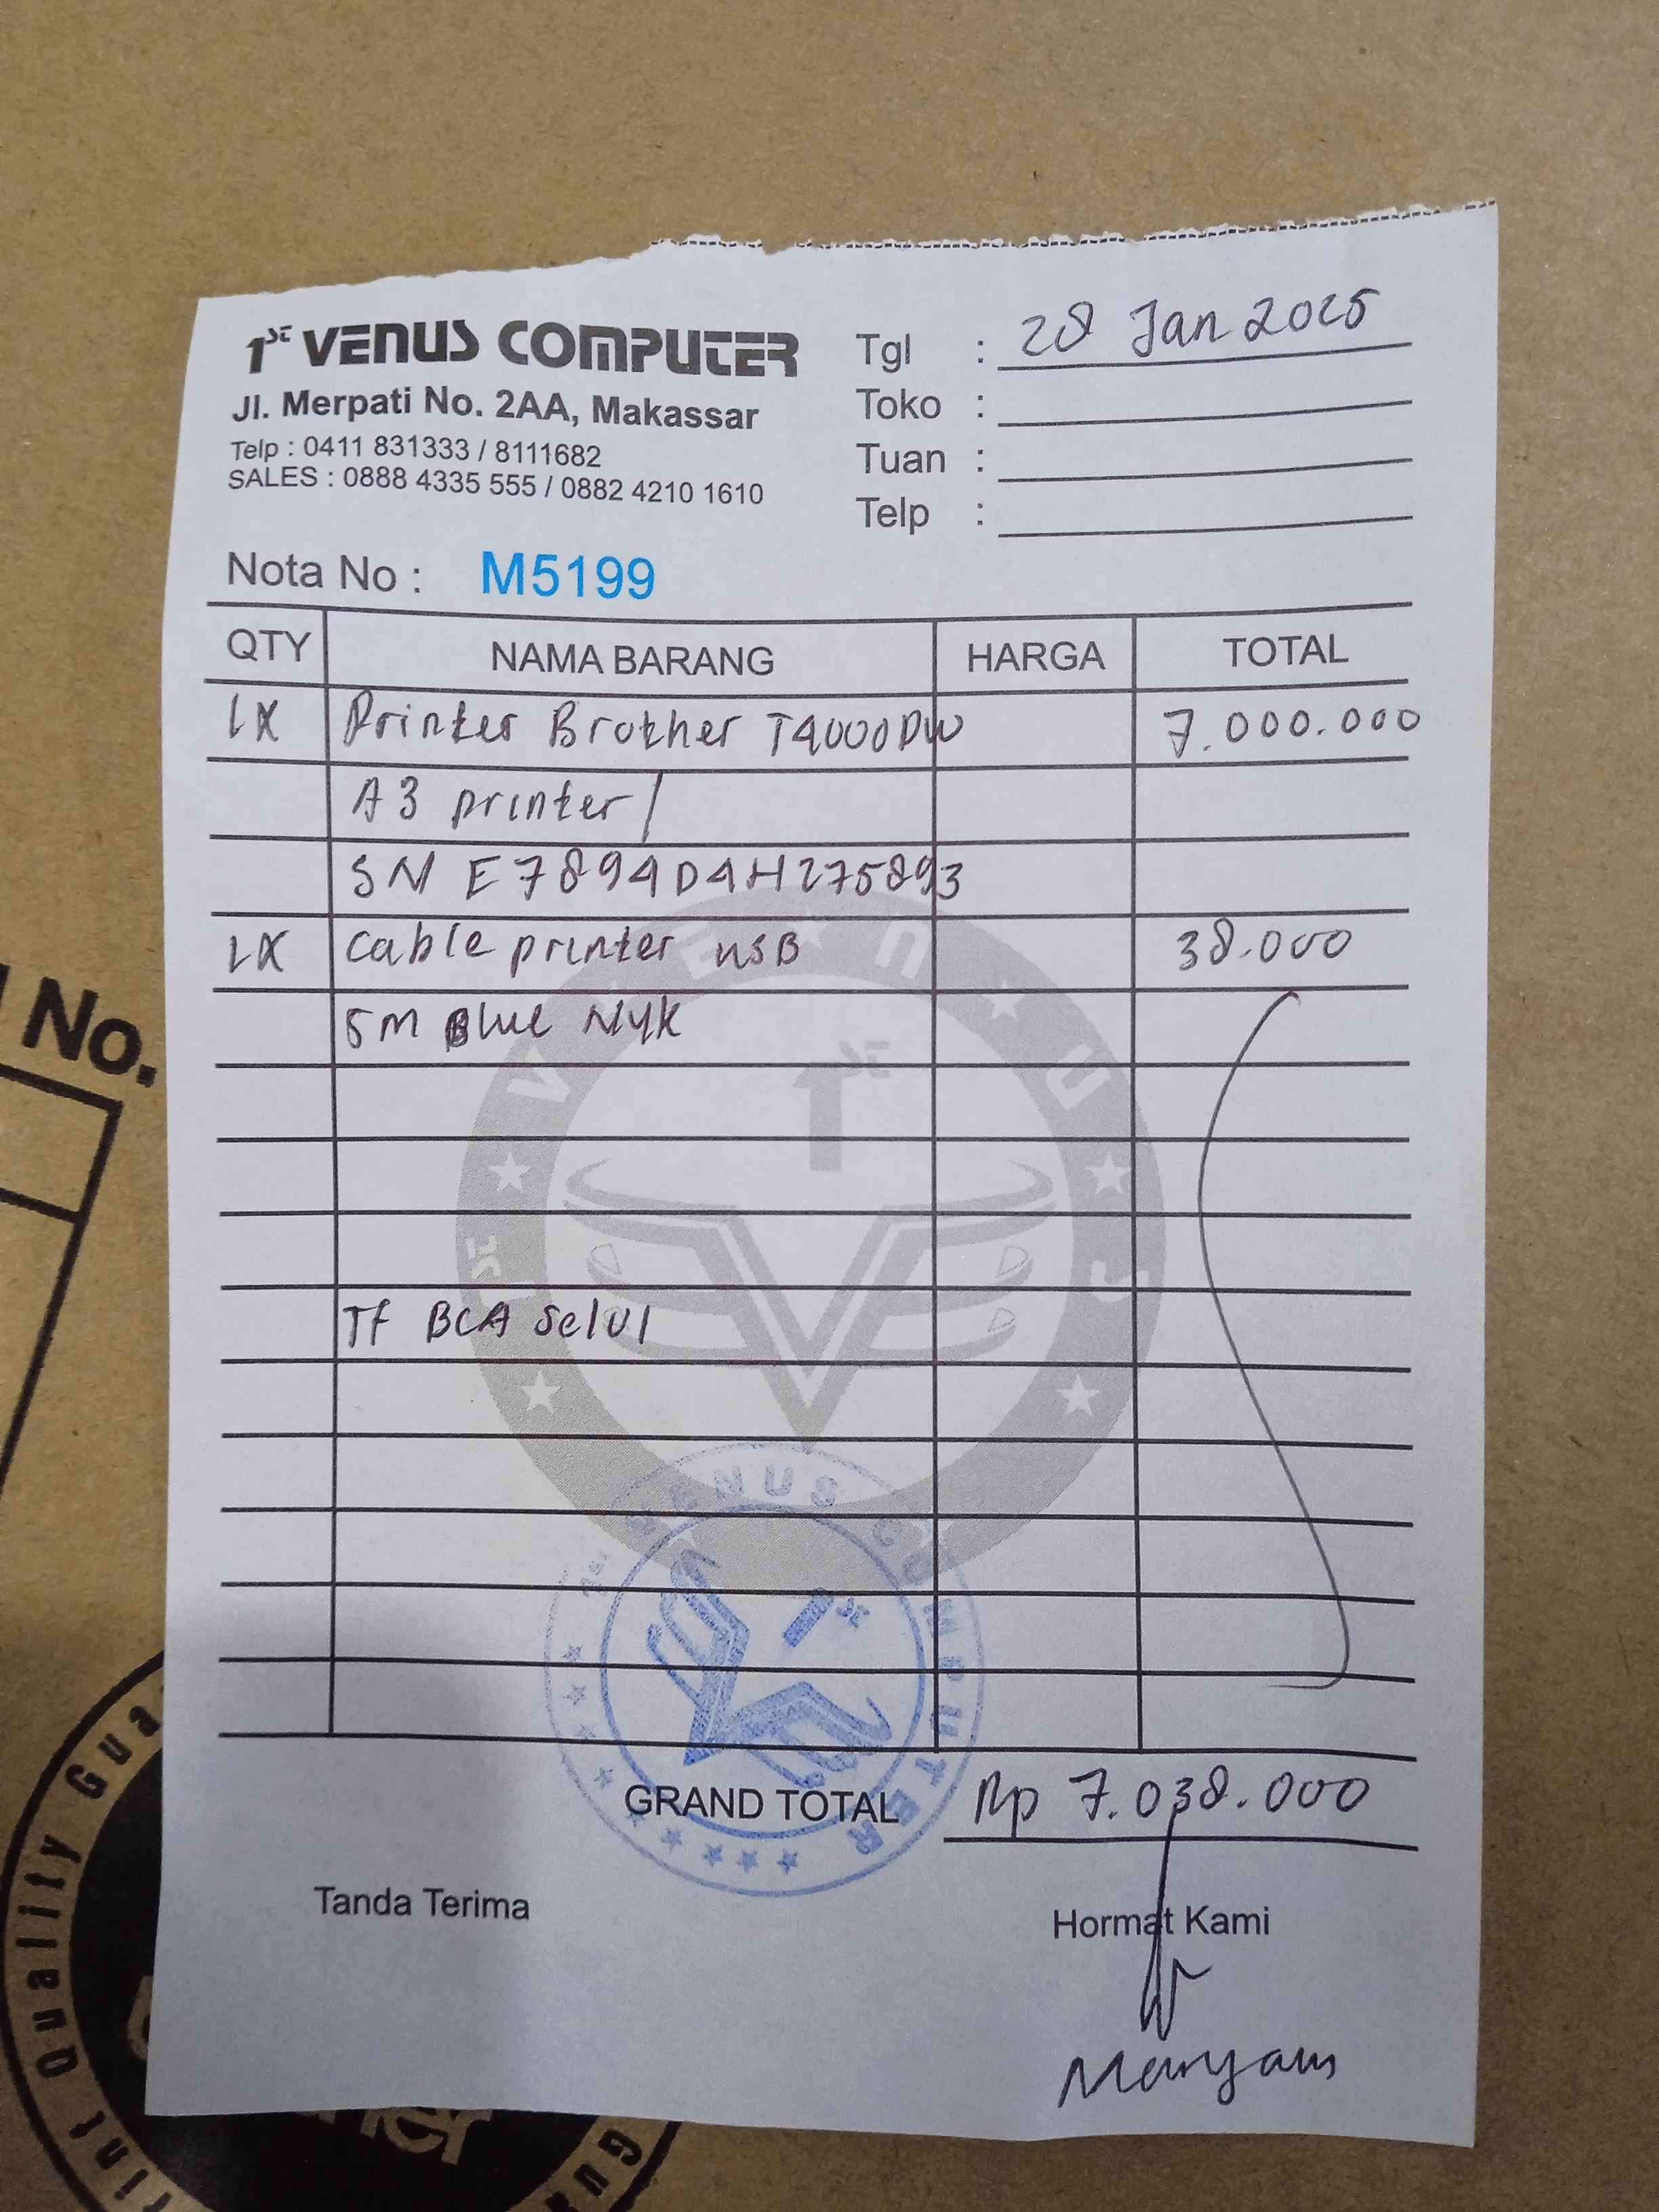 1SE VENUS COMPUTER
Jl. Merpati No. 2AA, Makassar
Telp : 0411 831333 / 8111682
SALES : 0888 4335 555 / 0882 4210 1610
Tgl : 28 Jan 2025
Toko :
Tuan :
Telp :
Nota No : M5199
QTY NAMA BARANG HARGA TOTAL
1X Printer Brother T4000DW 7.000.000
A3 printer /
SN E7894D4H275893
1X Cable printer USB 38.000
5M Blue NYK
TF BCA Selvi
VENUS COMPUTER
GRAND TOTAL Rp 7.038.000
Tanda Terima
Hormat Kami
Maryam
No.
Quality Gua
int